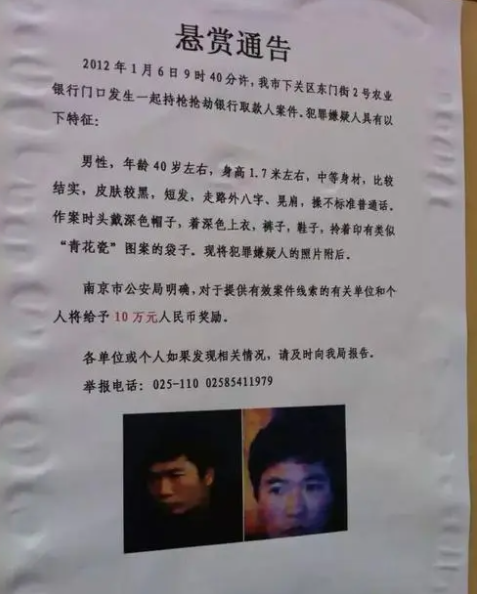 悬赏通告
2012年1月6日9时40分许，我市下关区东门街2号农业
银行门口发生一起持枪抢劫银行取款人案件。犯罪嫌疑人具有以
下特征：
男性，年龄40岁左右，身高1.7米左右，中等身材，比较
结实，皮肤较黑，短发，走路外八字、晃肩，操不标准普通话。
作案时头戴深色帽子，着深色上衣，裤子，鞋子，拎着印有类似
“青花瓷”图案的袋子。现将犯罪嫌疑人的照片附后。
南京市公安局明确，对于提供有效案件线索的有关单位和个
人将给予10万元人民币奖励。
各单位或个人如果发现相关情况，请及时向我局报告。
举报电话：025-110 02585411979